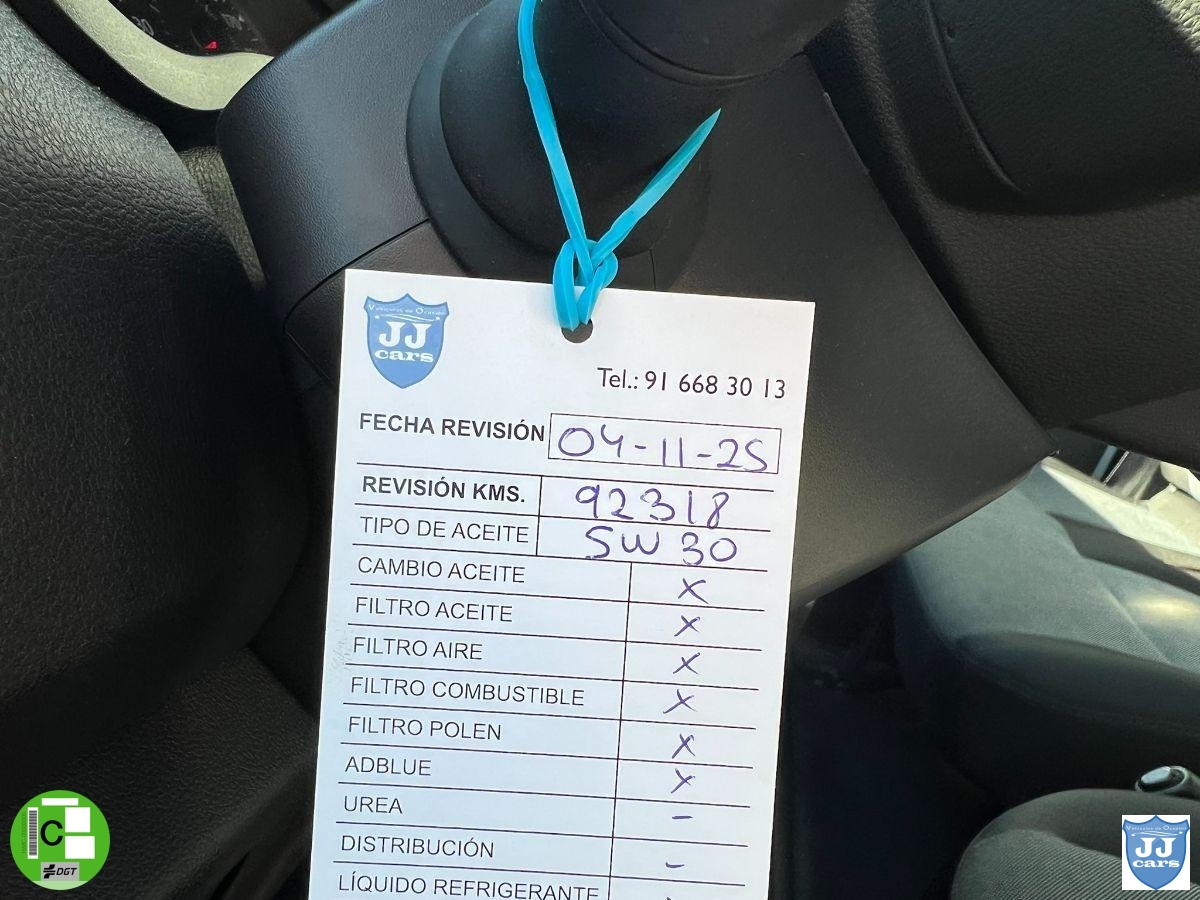 Vehículos de Ocasión
JJ
cars
Tel.: 91 668 30 13
FECHA REVISIÓN 04-11-25
REVISIÓN KMS. 92318
TIPO DE ACEITE 5W 30
CAMBIO ACEITE X
FILTRO ACEITE X
FILTRO AIRE X
FILTRO COMBUSTIBLE X
FILTRO POLEN X
ADBLUE X
UREA -
DISTRIBUCIÓN -
LÍQUIDO REFRIGERANTE
C
DGT
Vehículos de Ocasión
JJ
cars